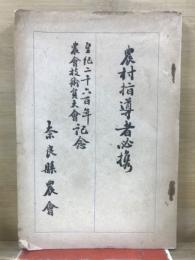 農村指導者必携
皇紀二千六百年記念
農會技術員大會
奈良縣農會